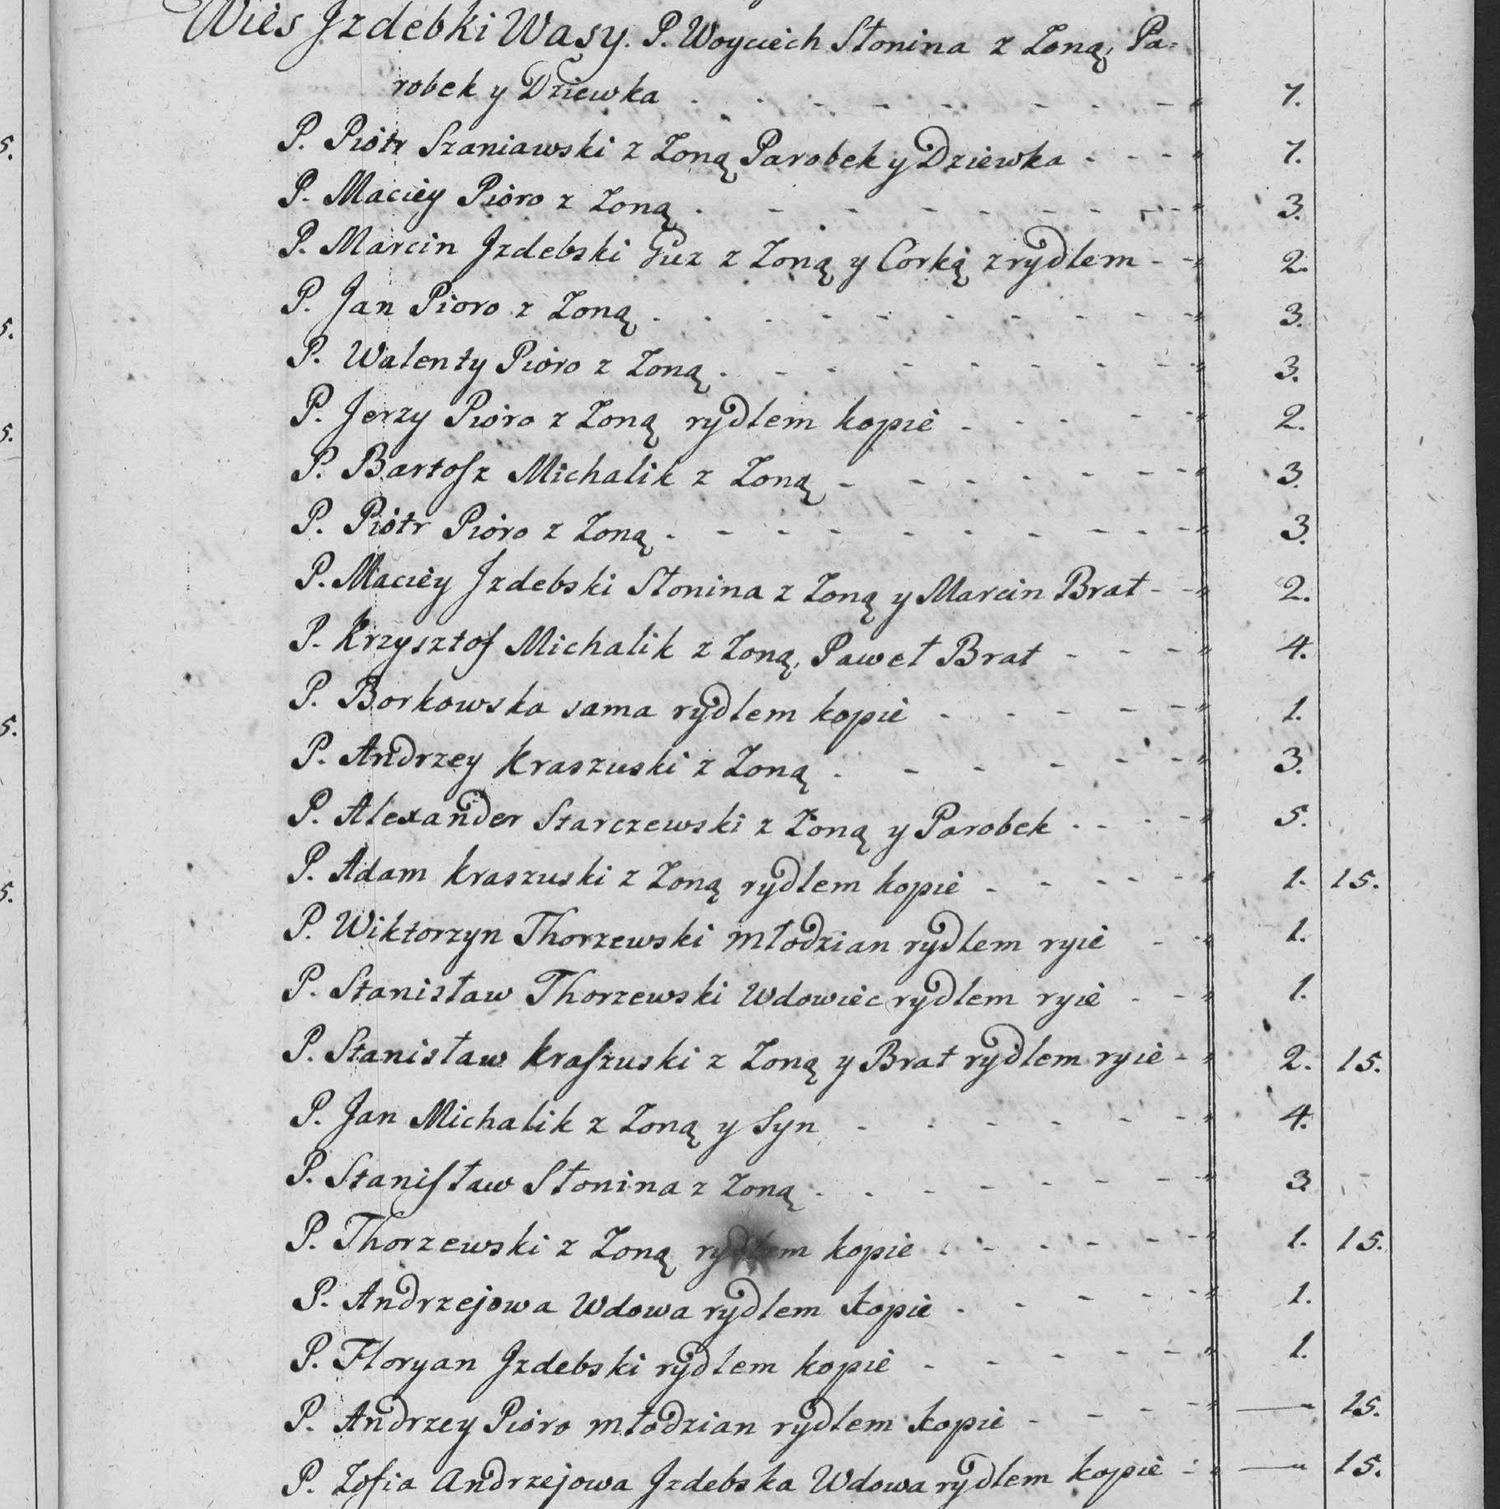 Wieś Jzdebki Wasy. P. Woyciech Słonina z Zoną, Pa-
robek y Dziewka . . . . . . . . 7.
5. P. Piótr Szaniawski z Zoną Parobek y Dziewka - - - 7.
P. Maciey Pióro z Zoną . - - - - - - - 3.
P. Marcin Jzdebski Guz z Zoną y Corką z rydlem - - 2.
5. P. Jan Pioro z Zoną . . . . . . . . 3.
P. Walenty Pióro z Zoną . - - - - - - 3.
5. P. Jerzy Pióro z Zoną rydlem kopie - - - - 2.
P. Bartosz Michalik z Zoną - - - - - - 3.
P. Piótr Pióro z Zoną . - - - - - - - 3.
P. Maciey Jzdebski Słonina z Zoną y Marcin Brat - - 2.
P. Krzysztof Michalik z Zoną, Paweł Brat - - - 4.
5. P. Borkowska sama rydlem kopie - - - - - 1.
P. Andrzey Kraszuski z Zoną . - - - - - 3.
P. Alexander Starczewski z Zoną y Parobek - - - 5.
5. P. Adam Kraszuski z Zoną rydlem kopie - - - - 1. 15.
P. Wiktorzyn Thorzewski młodzian rydlem ryie - - 1.
P. Stanisław Thorzewski Wdowiec rydlem ryie - - 1.
P. Stanisław Kraszuski z Zoną y Brat rydlem ryie - 2. 15.
P. Jan Michalik z Zoną y Syn - - - - - - 4.
P. Stanisław Słonina z Zoną . - - - - - 3.
P. Thorzewski z Zoną rydlem kopie - - - - - 1. 15.
P. Andrzejowa Wdowa rydlem kopie - - - - 1.
P. Floryan Jzdebski rydlem kopie - - - - - 1.
P. Andrzey Pióro młodzian rydlem kopie - - - - — 15.
P. Zofia Andrzejowa Jzdebska Wdowa rydlem kopie - — 15.